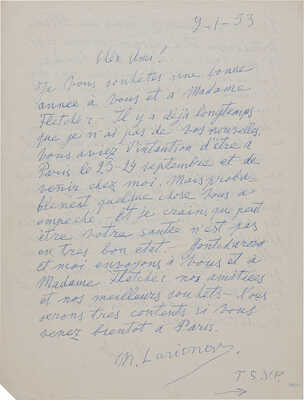 9-1-53
Cher Ami!
Je vous souhetes une bonne
année a vous et a Madame
Fletcher. Il y a déjà longtemps
que je n'ai pas de vos nouvelles,
Vous aviez l'intention d'être à
Paris le 23-24 septembre et de
venir chez moi. Mais proba-
blement quelque chose vous a
empeché. Et je crains que peut
être votre santé n'est pas
en tres bon etat. Gontcharova
et moi envoyons à vous et à
Madame Fletcher nos amitiées
et nos meilleurs souhets. Nous
serons tres contents si vous
venez bientot à Paris.
M. Larionov.
T.S.V.P.